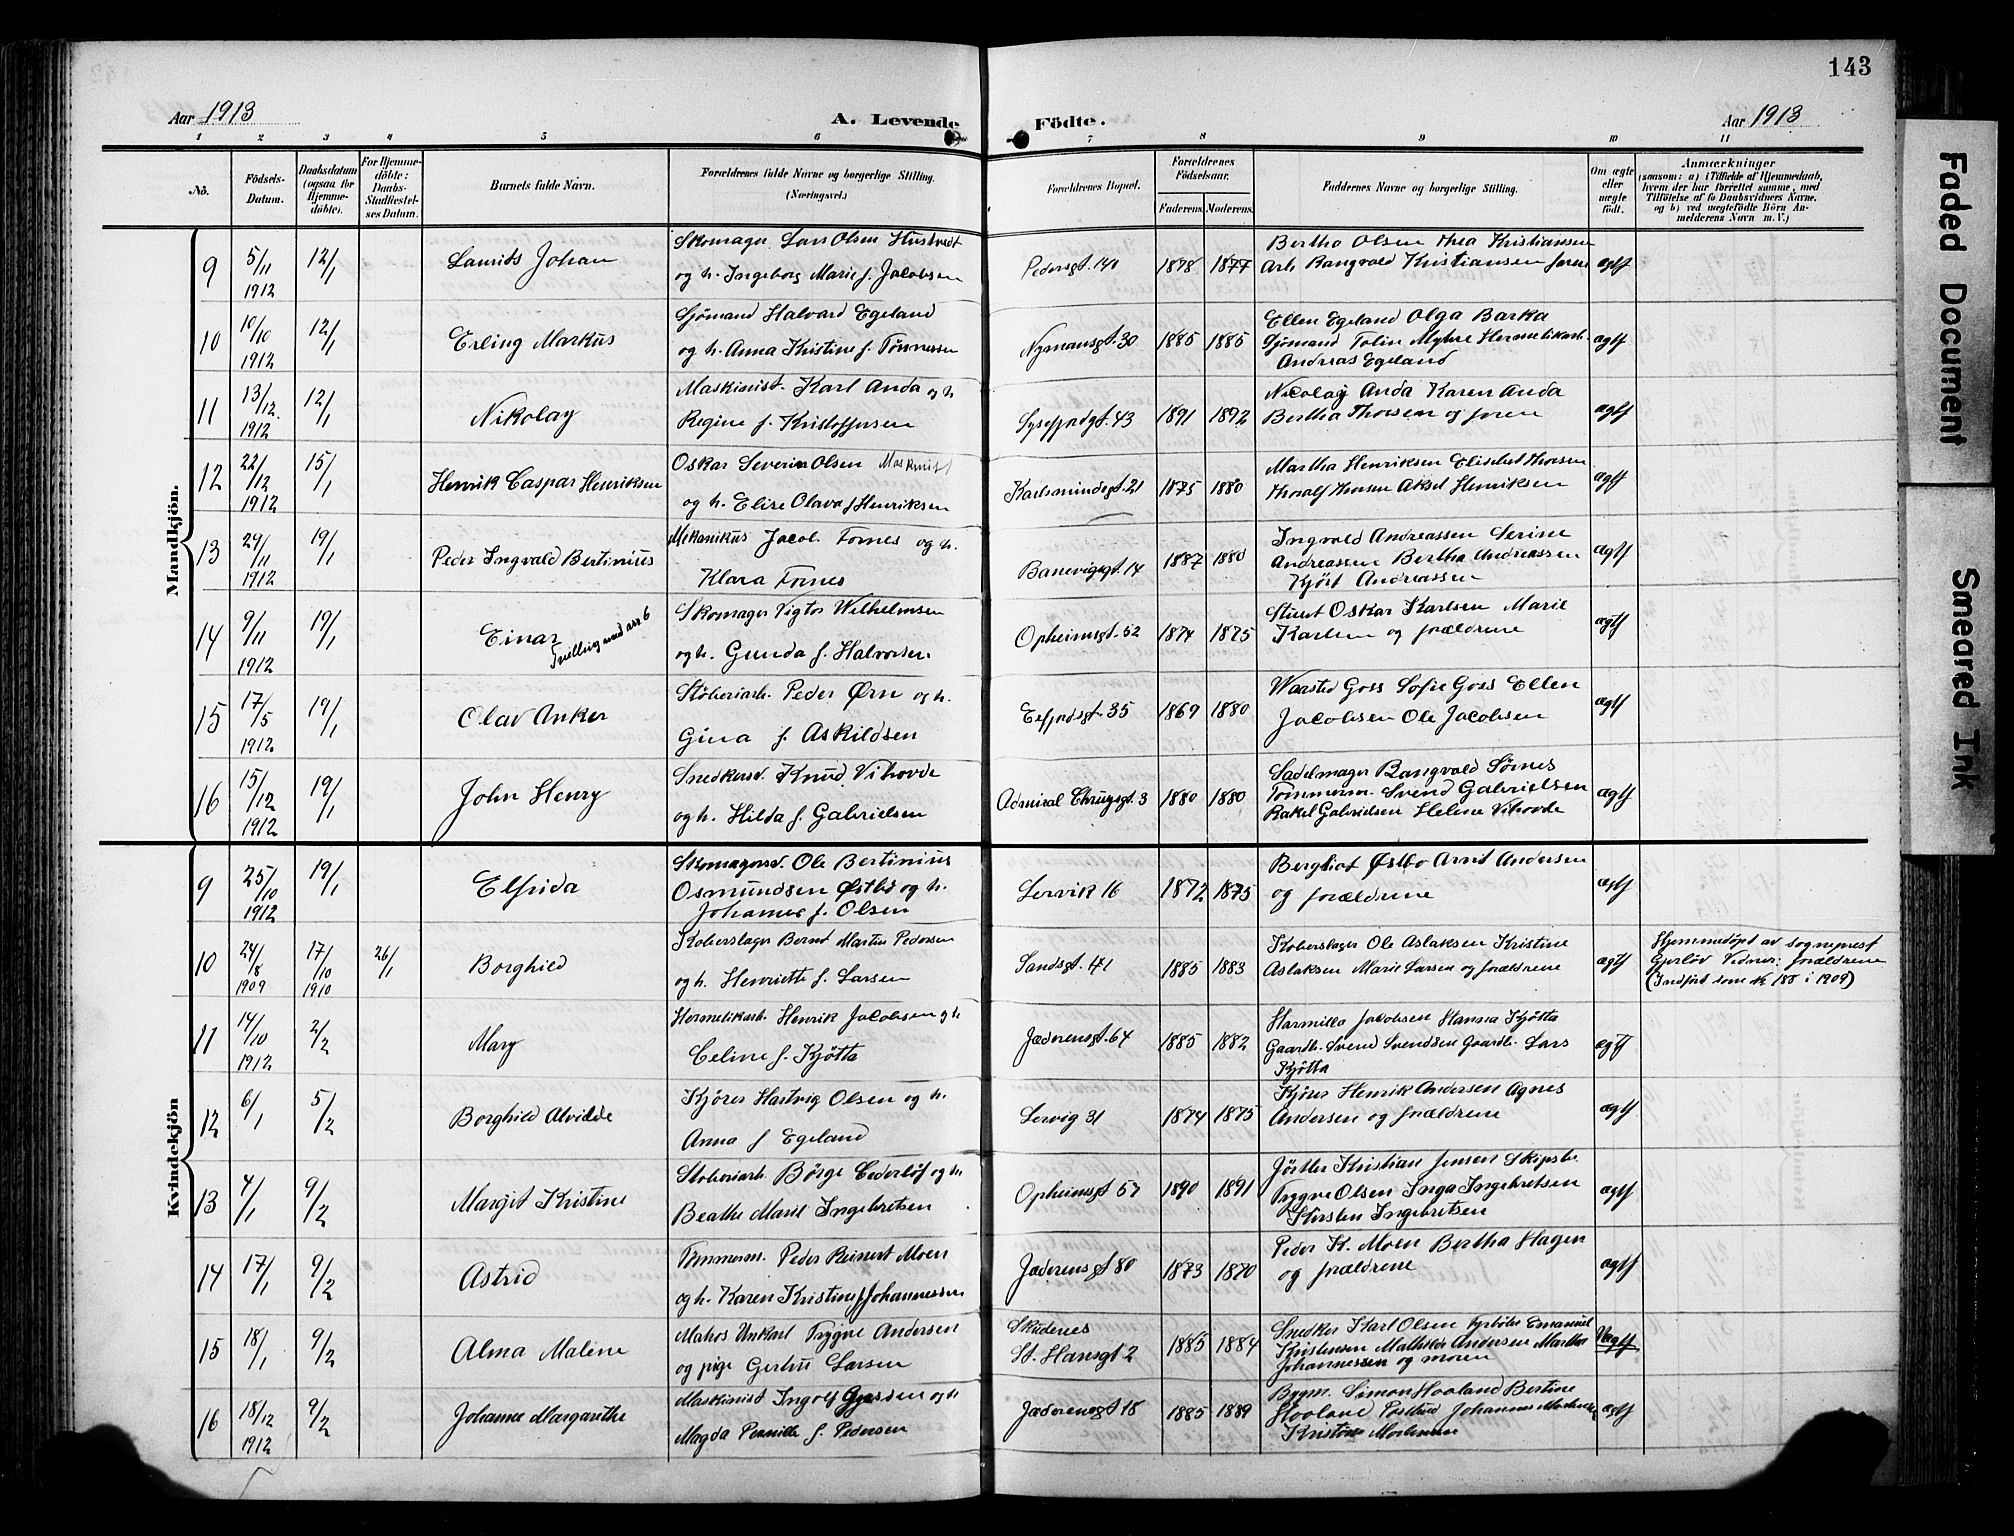 143
Aar 1913
A. Levende Födte.
Aar 1913
1 2 3 4 5 6 7 8 9 10 11
No.
Födsels-Datum.
Daabsdatum (ogsaa for Hjemmedöbte).
For Hjemmedöbte: Daabs-Stadfæstelses Datum.
Barnets fulde Navn.
Forældrenes fulde Navne og borgerlige Stilling. (Næringsvei.)
Forældrenes Bopæl.
Forældrenes Födselsaar.
Faderens. Moderens.
Faddernes Navne og borgerlige Stilling.
Om ægte eller uægte födt.
Anmærkninger
(saasom: a) i Tilfælde af Hjemmedaab,
hvem der har forrettet samme, med
Tilföielse af to Daabsvidners Navne,
og b) ved uægtefödte Börn Anmelderens Navn m. V.)
Mandkjön.
9 5/11 1912 12/1 Laurits Johan
Skomager Lars Olsen Hustvedt
og h. Ingeborg Marie f. Jacobsen
Pedersgt. 140 1878 1877
Bertha Olsen Thea Kristiansen
Arb. Rangvald Kristiansen foræl
ægtf
10 10/10 1912 12/1 Erling Markus
Sjömand Halvard Egeland
og h. Anna Kristine f. Tönnessen
Nymansgt. 30 1885 1885
Ellen Egeland Olga Barka
Sjömand Tolin Myhre Hermetikarb.
Andreas Egeland
ægtf
11 13/12 1912 12/1 Nikolay
Maskinist Karl Anda og h
Regine f. Kristoffersen
Lysefjordgt. 43 1891 1892
Nicolay Anda Karen Anda
Bertha Thorsen og foræl
ægtf
12 22/12 1912 15/1 Henrik Caspar Henriksen
Oskar Severin Olsen Maskinist
og h. Elise Olava f Henriksen
Karlsmindegt. 21 1875 1880
Martha Henriksen Elisabet Thorsen
Thoralf Thorsen Aksel Henriksen
ægtf
13 29/11 1912 19/1 Peder Ingvald Bertinius
Mekanikus Jacob Fornes og h.
Klara Fornes
Banevigsgt. 14 1887 1880
Ingvald Andreassen Serine
Andreassen Bertha Andreassen
Kjöst Andreassen
ægtf
14 9/11 1912 19/1 Einar
Tvilling med no 6
Skomager Vigtor Wilhelmsen
og h. Gunda f. Halvorsen
Opheimsgt. 52 1874 1875
Stuert Oskar Karlsen Marie
Karlsen og forældrene
ægtf
15 17/5 1912 19/1 Olav Anker
Stöberiarb. Peder Ørn og h.
Gina f. Askildsen
Eifjordsgt. 35 1869 1880
Waarsted Goss Sofie Goss Ellen
Jacobsen Ole Jacobsen
ægtf
16 15/12 1912 19/1 John Henry
Snedkersv. Knud Vihovde
og h. Hilda f. Gabrielsen
Admiral Chruysgt. 3 1880 1880
Sadelmager Rangvald Sörnes
Tömmerm. Svend Gabrielsen
Rakel Gabrielsen Helene Vihovde
ægtf
Kvindekjön
9 25/10 1912 19/1 Elfrida
Skomagersv. Ole Bertinius
Osmundsen Østbö og h.
Johanne f. Olsen
Lervik 16 1872 1875
Bergliot Østbo Arnt Andersen
og forældrene
ægtf
10 24/8 1909 17/10 1910 26/1 Borghild
Koberslager Bernt Martin Pedersen
og h. Henriette f. Larsen
Sandsgt. 41 1885 1883
Koberslager Ole Aslaksen Kristine
Aslaksen Marie Larsen og forældrene
ægtf
Hjemmedöpt av sogneprest
Gjerløv Vidner: forældrene
(Indfört som No 188 i 1909)
11 14/10 1912 2/2 Mary
Hermetikarb. Henrik Jacobsen og h
Celine f. Kjötta
Jæderensgt. 64 1885 1882
Harmilla Jacobsen Hansia Kjötta
Gaardb. Svend Svendsen Gaardb. Lars
Kjötta
ægtf
12 6/1 5/2 Borghild Alvilde
Kjörer Hartvig Olsen og h.
Anna f Egeland
Lervig 31 1874 1875
Kjörer Henrik Andersen Agnes
Andersen og forældrene
ægtf
13 4/1 9/2 Margit Kristine
Stöberiarb. Börge Cederlöf og h.
Beathe Marie Ingebretsen
Opheimsgt 57 1890 1891
Jörtler Kristian Jensen Skipsb.
Trygve Olsen Inga Ingebretsen
Kirsten Ingebretsen
ægtf
14 17/1 9/2 Astrid
Tömmerm. Peder Reinert Moen
og h. Karen Kristine f Johannessen
Jæderensgt 80 1873 1870
Peder K. Moen Bertha Hagen
og forældrene
ægtf
15 18/1 9/2 Alma Malene
Matros Unkarl Trygve Andersen
og pige Gertru Larsen
Skudenes
St. Hansgt 2 1885 1884
Snedker Karl Olsen Fyrböter Emanuel
Kristensen Mathilde Andersen Martha
Johannessen og moren
Uægtf
16 18/12 1912 9/2 Johanne Margarethe
Maskinist Ingolf Gjesden og h
Magda Pernille f. Pedersen
Jæderensgt 18 1885 1889
Bygm. Simon Hovland Bertine
Hovland Postbud Johannes
Kristine
ægtf
Faded Document
Smeared Ink